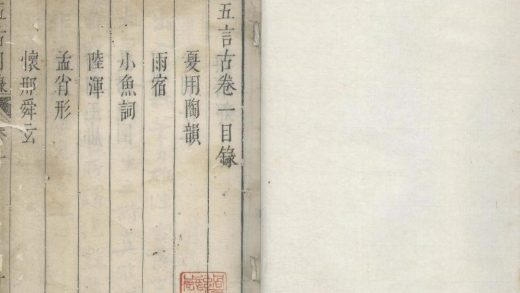 五言古卷一目錄
夏用陶韻
雨宿
小魚詞
陸渾
孟省形
懷邢舜玄